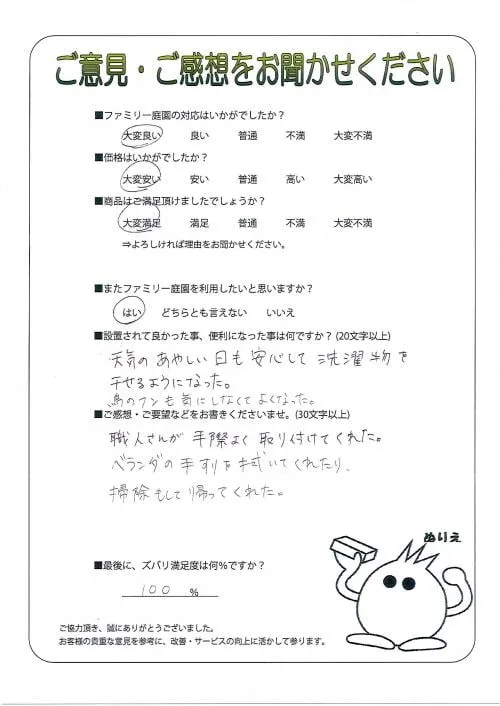 ご意見・ご感想をお聞かせください
■ファミリー庭園の対応はいかがでしたか?
大変良い 良い 普通 不満 大変不満
■価格はいかがでしたか?
大変安い 安い 普通 高い 大変高い
■商品はご満足頂けましたでしょうか?
大変満足 満足 普通 不満 大変不満
⇒よろしければ理由をお聞かせください。
■またファミリー庭園を利用したいと思いますか?
はい どちらとも言えない いいえ
■設置されて良かった事、便利になった事は何ですか? (20文字以上)
天気のあやしい日も安心して洗濯物を
干せるようになった。
鳥のフンも気にしなくてよくなった。
■ご感想・ご要望などをお書きくださいませ。(30文字以上)
職人さんが手際よく取り付けてくれた。
ベランダの手すりを拭いてくれたり、
掃除もして帰ってくれた。
ぬりえ
■最後に、ズバリ満足度は何%ですか?
100 %
ご協力頂き、誠にありがとうございました。
お客様の貴重な意見を参考に、改善・サービスの向上に活かして参ります。